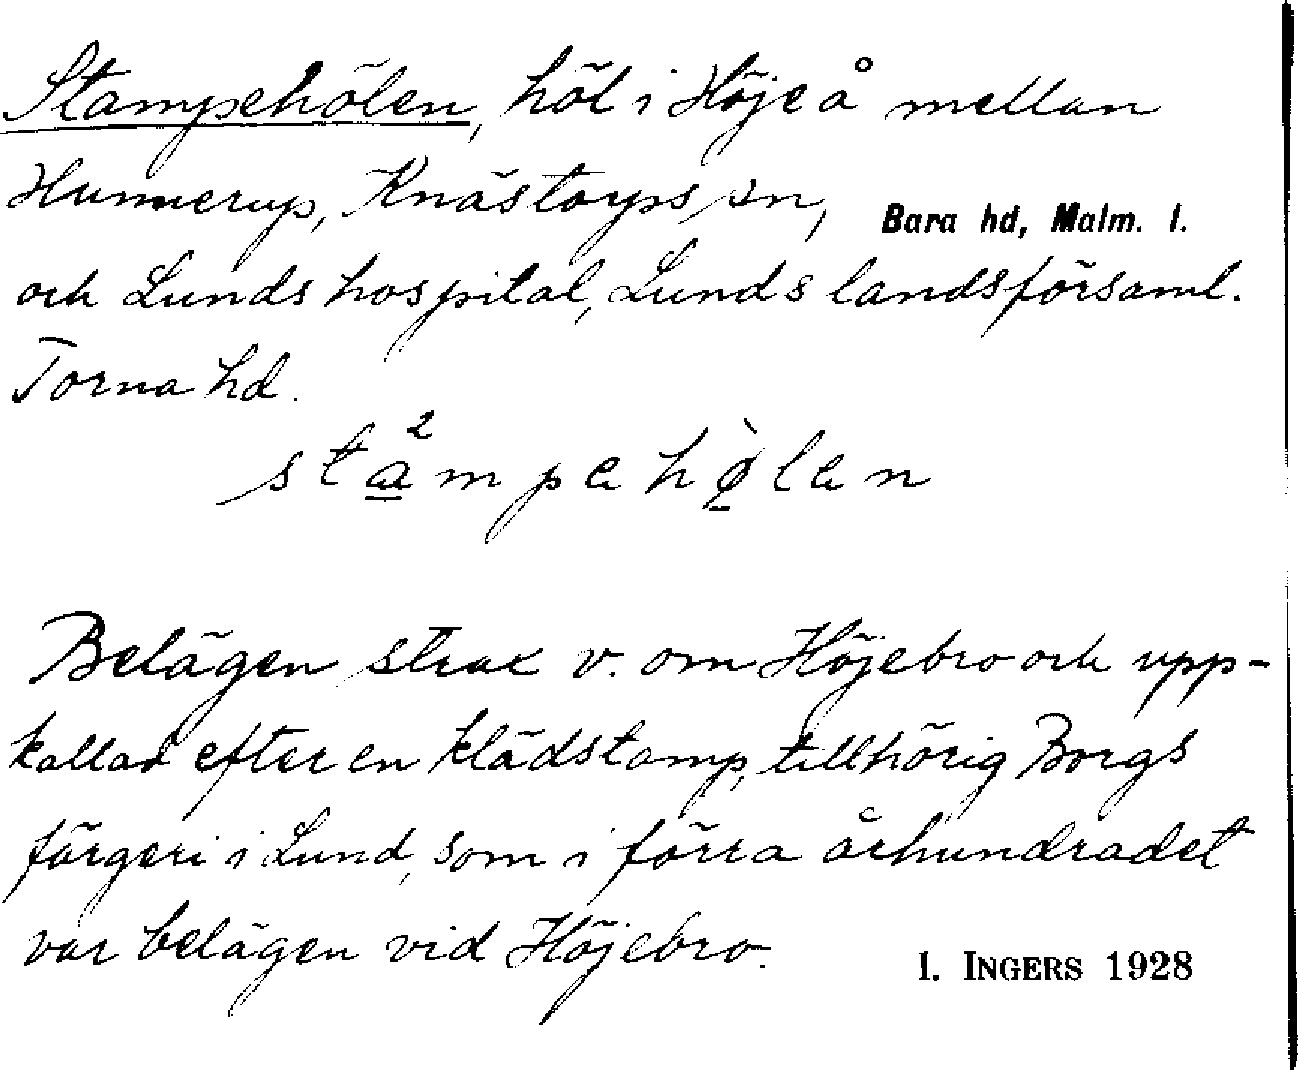 Stampehölen, höl i Höjeå mellan
Hunnerup, Knästorps sn, Bara hd, Malm. l.
och Lunds hospital, Lunds landsförsaml.
Torna hd.
sta̳²mpehø̤̀len
Belägen strax v. om Höjebro och upp-
kallad efter en klädstamp, tillhörig Borgs
färgeri i Lund, som i förra århundradet
var belägen vid Höjebro.
I. INGERS 1928